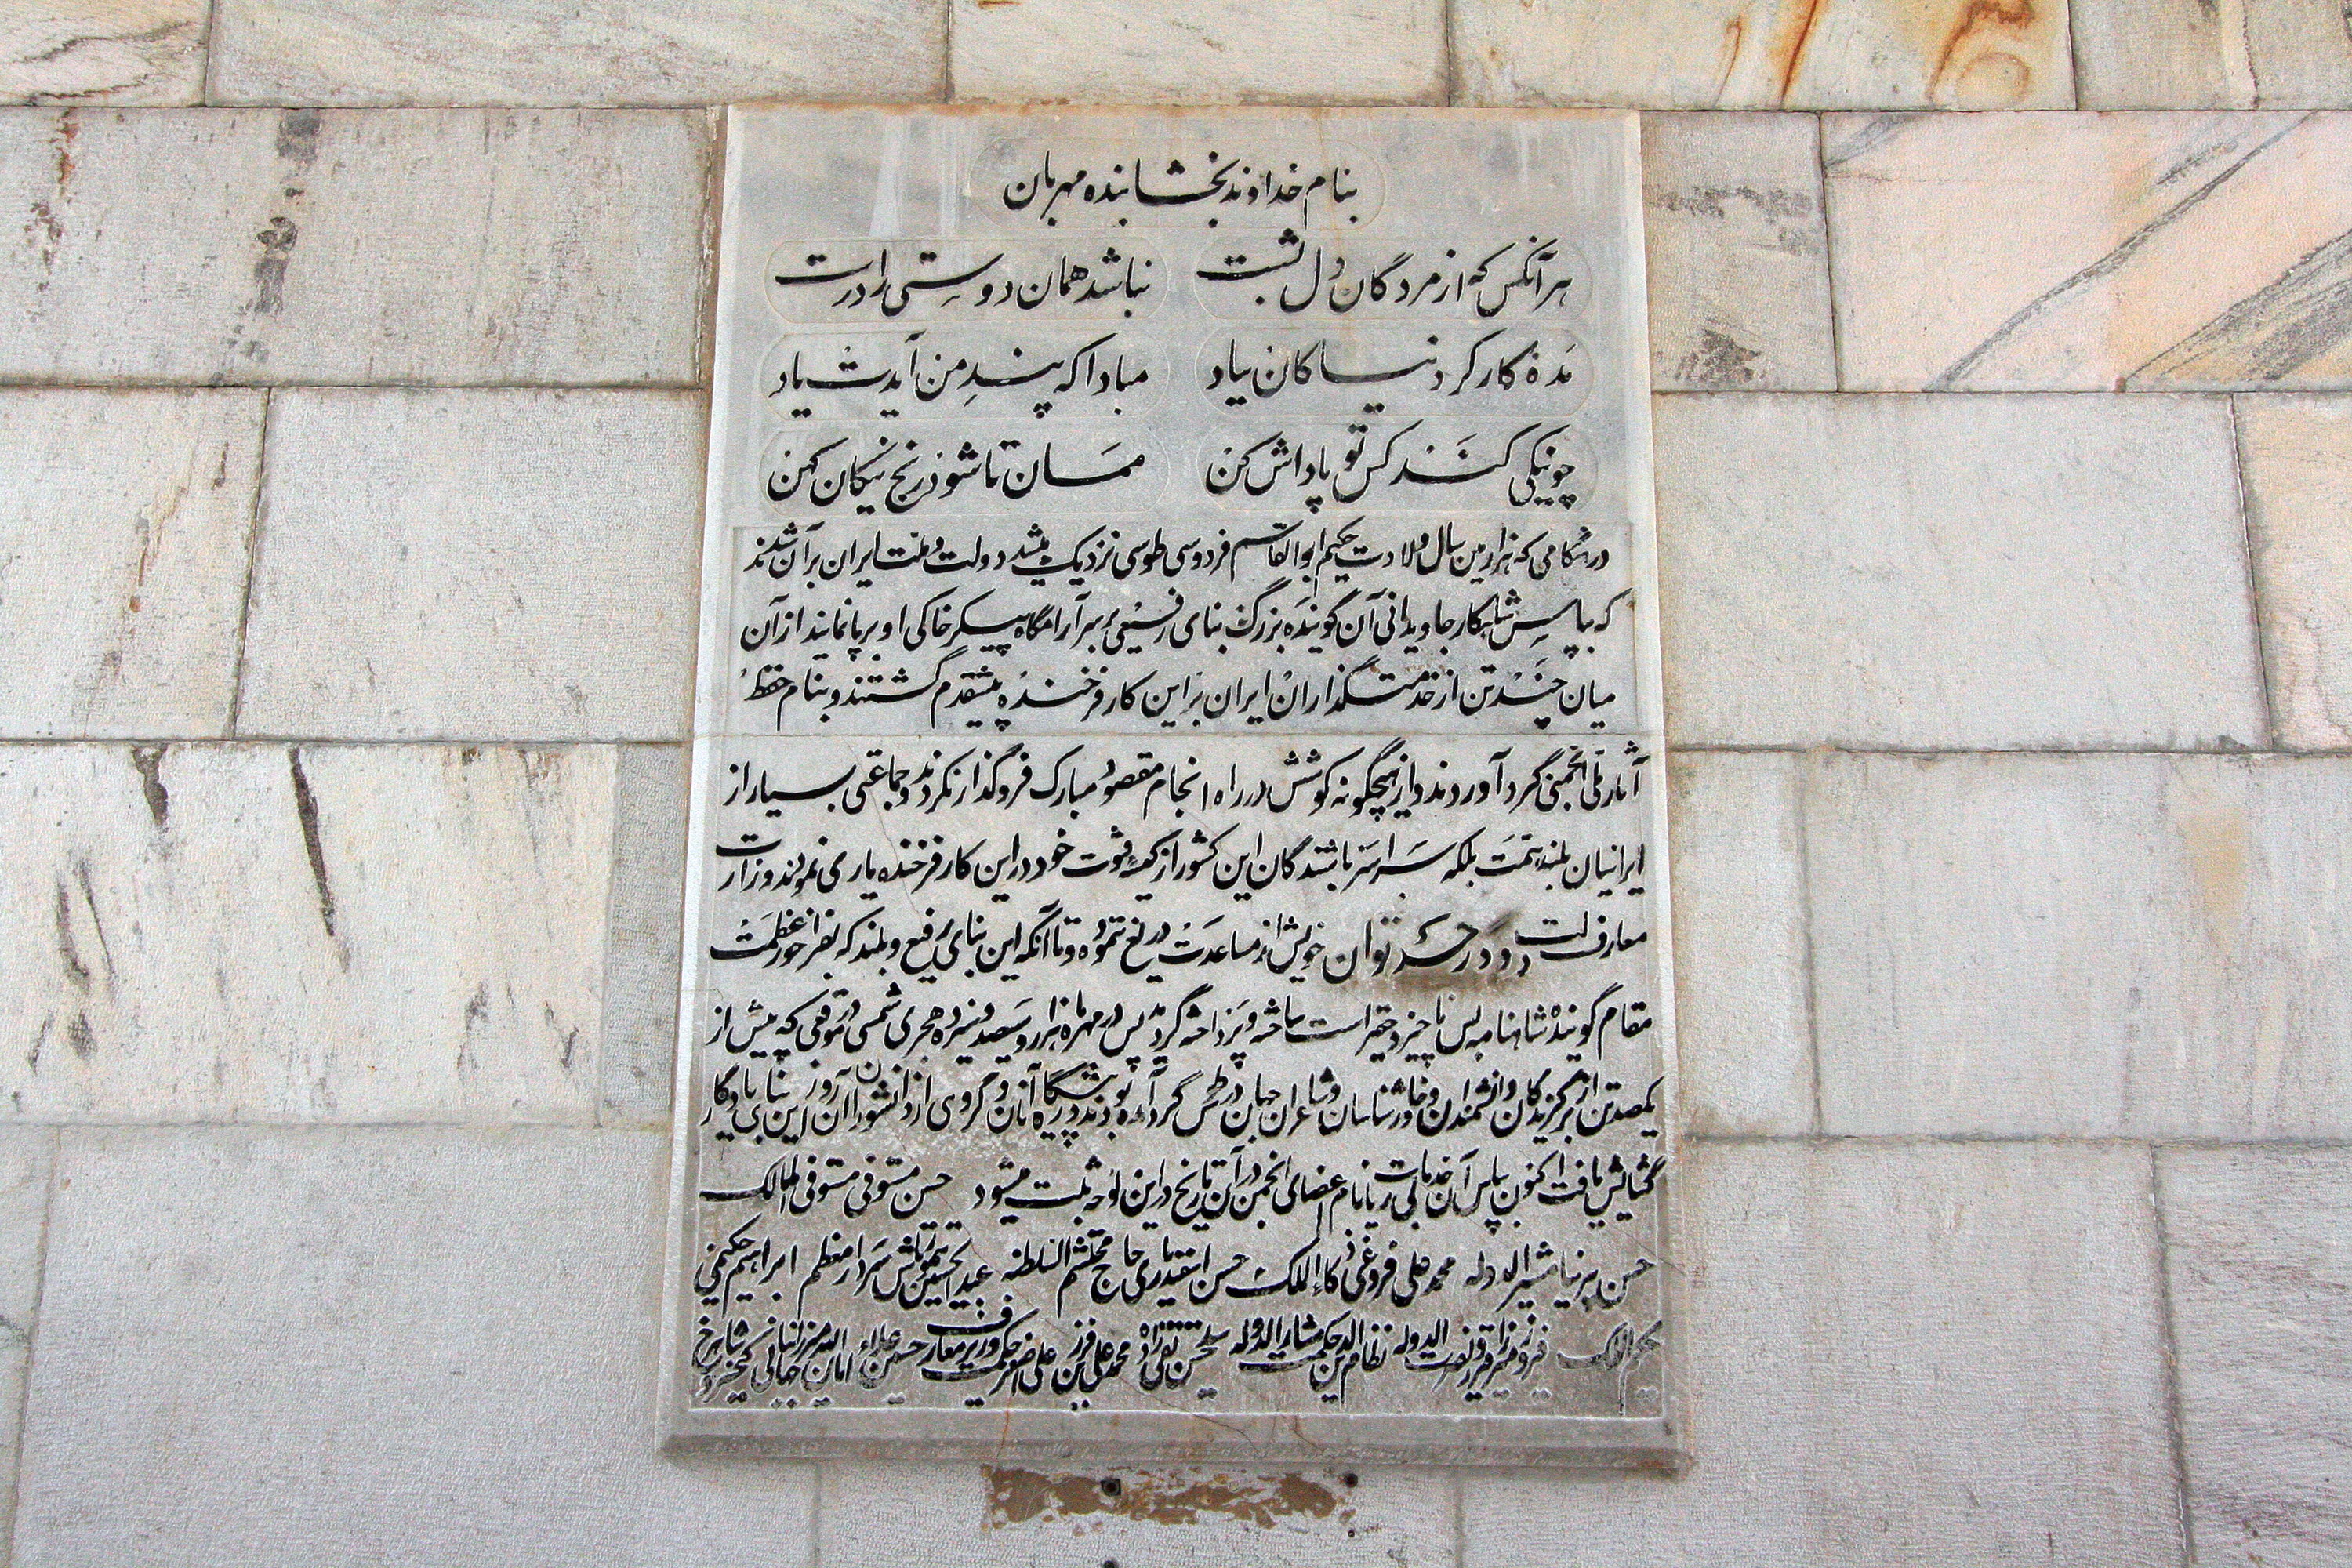 بنام خداوند بخشاینده مهربان
هر آنکس که از مردگان دل بشست نباشد همان دوستی را درست
مده کارکرد نیاکان بیاد مبادا که پند من آیدت یاد
چو نیکی کند کس تو پاداش کن ممان تا شود رنج نیکان کهن
در هنگامی که هزارمین سال ولادت حکیم ابوالقاسم فردوسی طوسی نزدیک میشد دولت و ملت ایران بر آن شدند
که بپاس شاهکار جاویدانی آن گوینده بزرگ بنای رفیعی بر سر آرامگاه پیکر خاکی او برپا نمایند از آن
میان چند تن از خدمتگذاران ایران بر این کار فرخنده پیشقدم گشتند و بنام حفظ
آثار ملی انجمنی گرد آوردند و از هیچگونه کوشش در راه انجام مقصود مبارک فروگذار نکردند و جماعتی بسیار از
ایرانیان بلند همت بلکه سراسر باشندگان این کشور از کیسه فتوت خود در این کار فرخنده یاری نمودند وزارت
معارف دولت در حد توان خویش از مساعدت دریغ ننمود و تا آنکه این بنای رفیع و بلند که بفراخور عظمت
مقام گوینده شاهنامه بس ناچیز و حقیر است ساخته و پرداخته گردید پس در مهرماه هزار و سیصد و سیزده هجری شمسی در موقعی که بیش از
یکصد تن از برگزیدگان و دانشمندان و خاورشناسان و شاعران جهان در طوس گرد آمده بودند در پیشگاه آنان و گروهی از دانشوران آن روز این بنای یادگار
گشایش یافت اکنون بپاس آن خدمات بی ریا نام اعضای انجمن در آن تاریخ در این لوحه ثبت میشود حسن مستوفی مستوفی الممالک
حسن پیرنیا مشیرالدوله محمد علی فروغی ذکاءالملک حسن اسفندیاری حاج محتشم السلطنه عبدالحسین تیمورتاش سردار معظم ابراهیم حکیمی
حکیم الملک فیروز میرزا فیروز نصرت الدوله نظام الدین حکمت مشارالدوله سید حسن تقی زاده محمد علی فرزین علی اصغر حکمت وزیر معارف حسین علاء امان الله میرزا جهانبانی کیخسرو شاهرخ